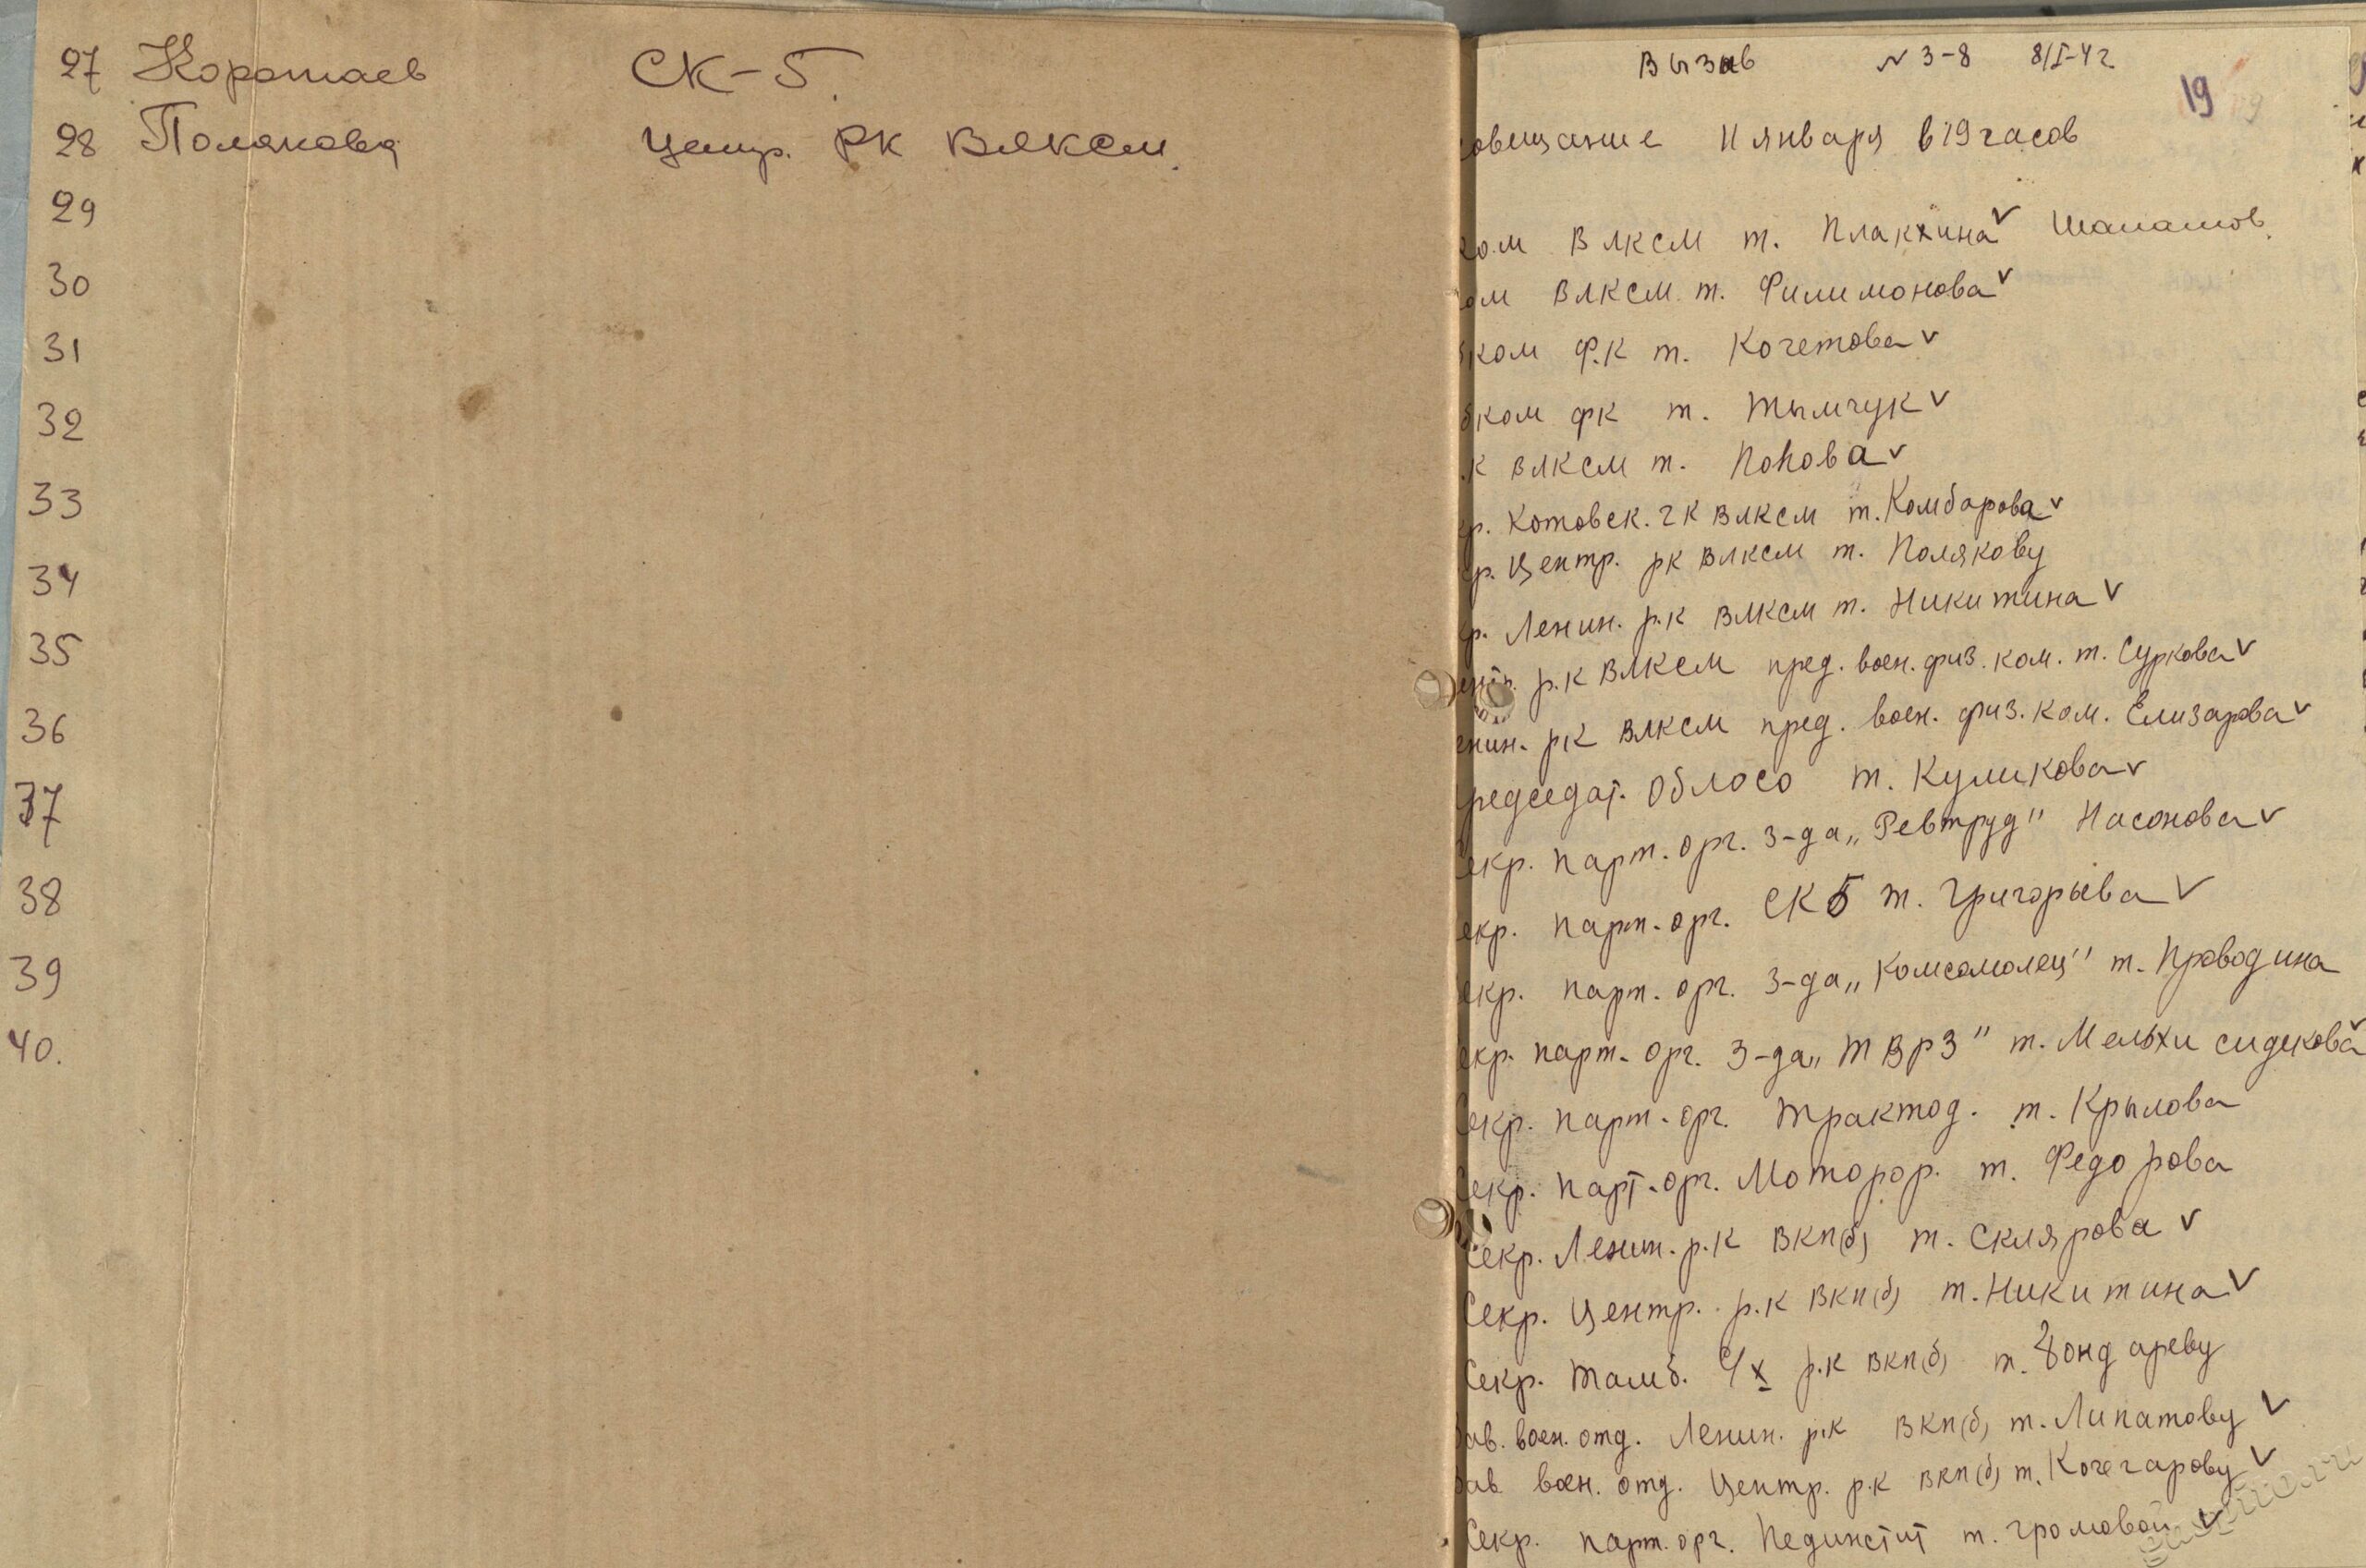 27 Коротаев СК-5.
28 Полякова Центр. РК ВЛКСМ.
29
30
31
32
33
34
35
36
37
38
39
40.
Вызыв N 3-8 8/I-42
19
овещание 11 января в 19 часов
ком ВЛКСМ т. Плакхина v Шапашов.
ом ВЛКСМ т. Филимонова v
ком Ф.К т. Кочетова v
ком ФК т. Тымчук v
к ВЛКСМ т. Попова v
р. Котовск. гк ВЛКСМ т. Комбарова v
р. Центр. рк ВЛКСМ т. Полякову
р. Ленин. р.к ВЛКСМ т. Никитина v
ентр. р.к ВЛКСМ пред. воен. физ. ком. т. Суркова v
енин. рк ВЛКСМ пред. воен. физ. ком. Елизарова v
редседат. Облосо т. Куликова v
екр. парт. орг. з-да „Ревтруд" Насонова v
екр. парт. орг. СК 5 т. Григорьева v
екр. парт. орг. з-да „Комсомолец" т. Проводина
екр. парт. орг. з-да „ТВРЗ" т. Мельхи седекова v
екр. парт. орг. Трактод. т. Крылова
Секр. парт. орг. Моторор. т. Федорова
Секр. Ленин. р.к ВКП(б) т. Склярова v
Секр. Центр. р.к ВКП(б) т. Никитина v
Секр. Тамб. с/х р.к ВКП(б) т. Бондареву
Зав. воен. отд. Ленин. р.к ВКП(б) т. Липатову v
Зав воен. отд. Центр. р.к ВКП(б) т. Кочегарову v
Секр. парт. орг. Пединстит т. Громовой v